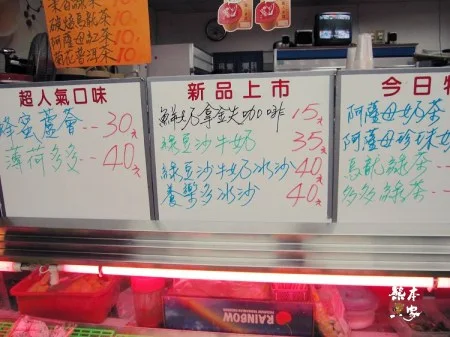 茉香綠茶 10.
碳焙烏龍茶 10.
阿薩姆紅茶 10.
菊花普洱茶 10.
超人氣口味
蜂蜜蘆薈--30元
薄荷多多--40元
新品上市
鮮奶拿鐵夫咖啡 15元
綠豆沙牛奶 35元
綠豆沙牛奶冰沙 40元
養樂多冰沙 40元
今日特
阿薩母奶茶
阿薩母珍珠奶
烏龍綠茶
多多綠茶
RAINBOW
熊本一家